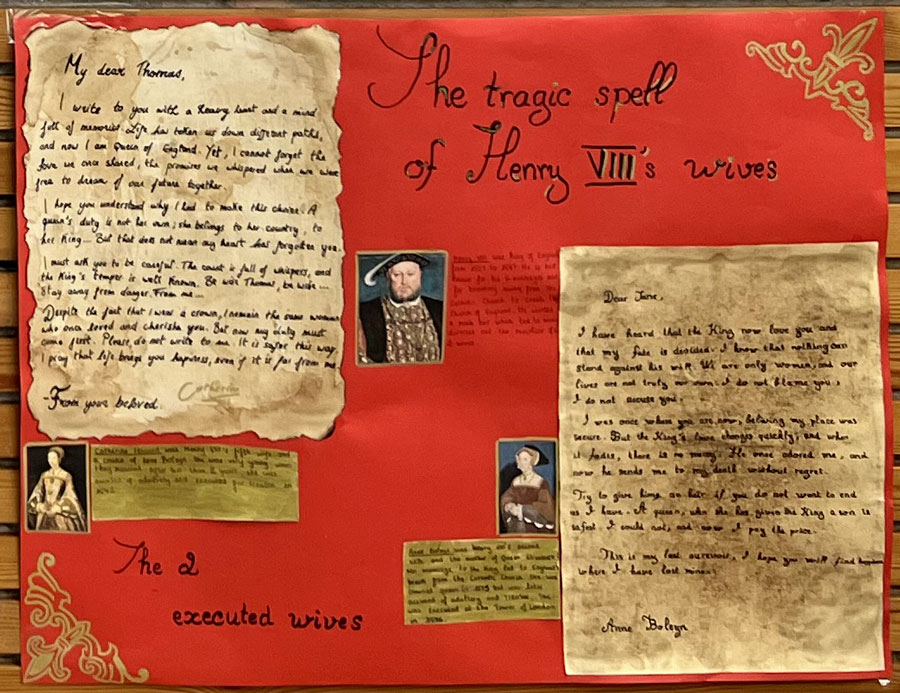 The tragic spell
of Henry VIII's wives
My dear Thomas,
I write to you with a heavy heart and a mind
full of memories. Life has taken us down different paths,
and now I am Queen of England. Yet, I cannot forget the
love we once shared, the promises we whispered when we were
free to dream of our future together.
I hope you understand why I had to make this choice. A
queen's duty is not her own; she belongs to her country, to
her King... But that does not mean my heart has forgotten you.
I must ask you to be careful. The court is full of whispers, and
the King's temper is well known. Be wise Thomas, be wise...
Stay away from danger. From me...
Despite the fact that I wear a crown, I remain the same woman
who once loved and cherished you. But now my duty must
come first. Please, do not write to me. It is safer this way.
I pray that life brings you happiness, even if it is far from me
-From your beloved.
Catherine
Henry VIII was King of England
from 1509 to 1547. He is best
known for his 6 marriages and
for breaking away from the
Catholic Church to create the
Church of England. He wanted
a male heir which led to
divorces and the execution of
2 wives.
Dear Jane,
I have heard that the King now love you and
that my fate is decided. I know that nothing can
stand against his will. We are only women, and our
lives are not truly our own. I do not blame you,
I do not accuse you.
I was once where you are now, beliving my place was
secure. But the King's love changes quickly, and when
it fades, there is no mercy. He once adored me, and
now he sends me to my death without regret.
Try to give him an heir if you do not want to end
as I have. A queen, who she has given the King a son is
safest. I could not, and now I pay the price.
This is my last aurevoir, I hope you will find happiness
where I have lost mine.
Anne Boleyn
Catherine Howard was Henry VIII's fifth wife and
a cousin of Anne Boleyn. She was very young when
they married
of adultery and executed for treason in
1542.
Anne Boleyn was Henry VIII's second
wife and the mother of Queen Elizabeth I.
His marriage to the King led to England's
break from the Catholic Church. She was
crowned queen in 1533 but was later
accused of adultery and treason. She
was executed at the Tower of London
in 1536.
The 2
executed wives